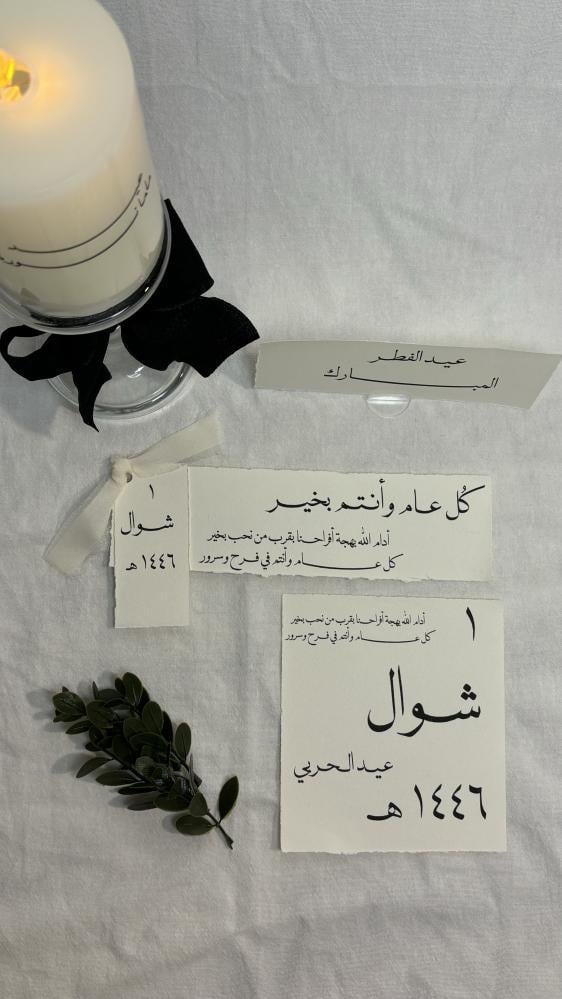 عيد الفطر
المبـــارك
١
شوال
١٤٤٦ هـ
كُل عام وأنتم بخير
أدام الله بهجة أفراحنا بقرب من نحب بخير
كل عـــام وأنتم في فرح وسرور
١
أدام الله بهجة أفراحنا بقرب من نحب بخير
كل عـــام وأنتم في فرح وسرور
شوال
عيد الحربي
١٤٤٦ هـ